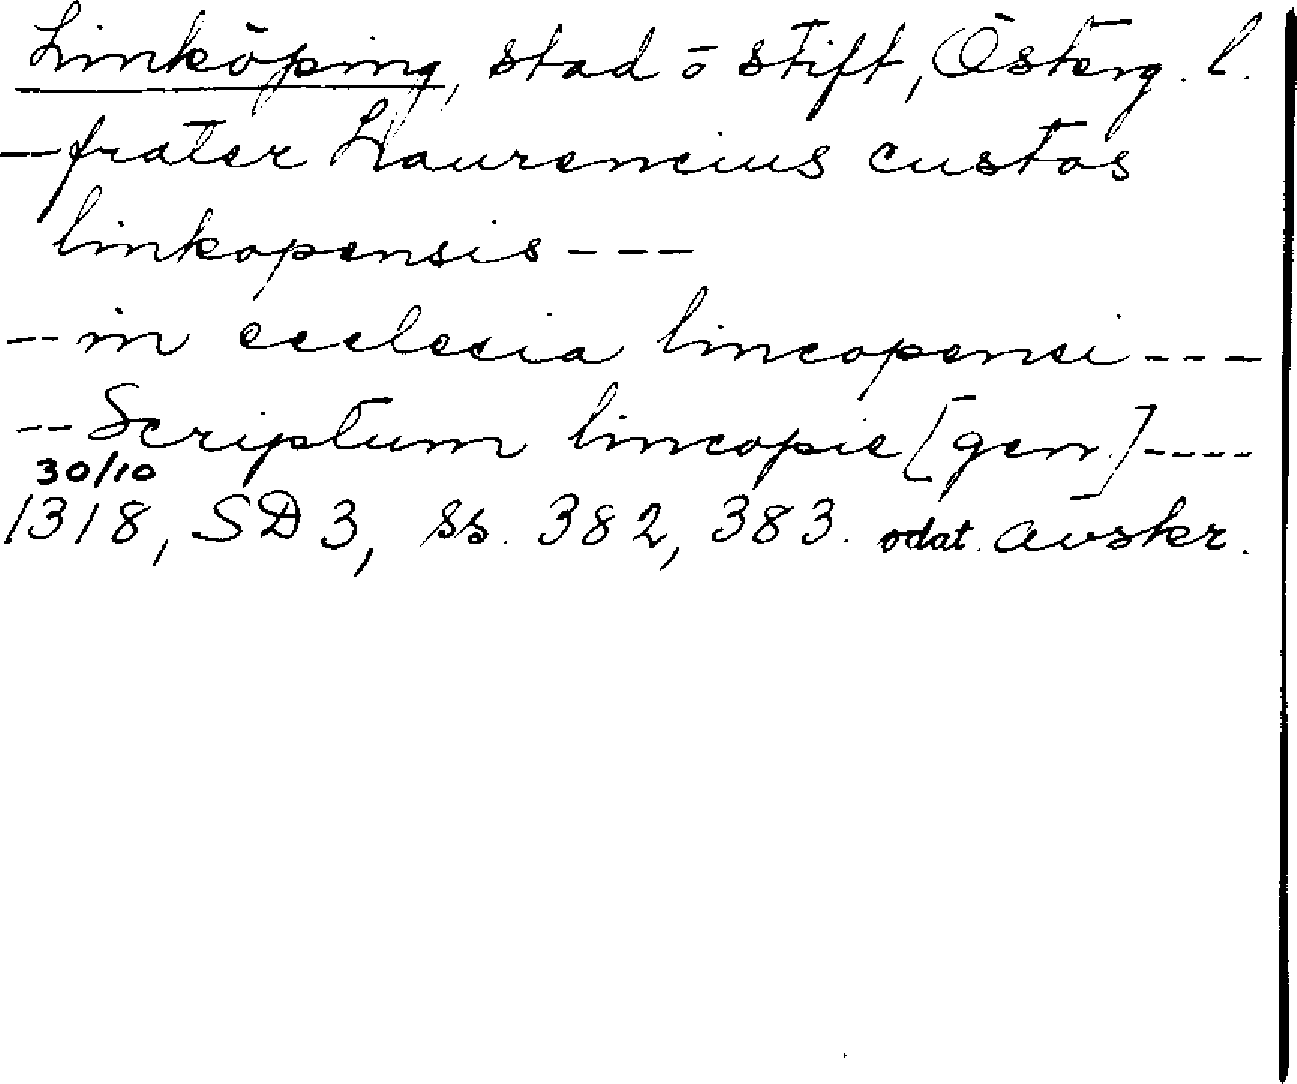 Linköping, stad o stift, Österg. l.
- frater Laurencius custos
linkopensis ---
-- in ecclecia lincopensi ---
-- Scriptum lincopie [gen.] ----
30/10
1318, SD 3, ss. 382, 383. odat. avskr.